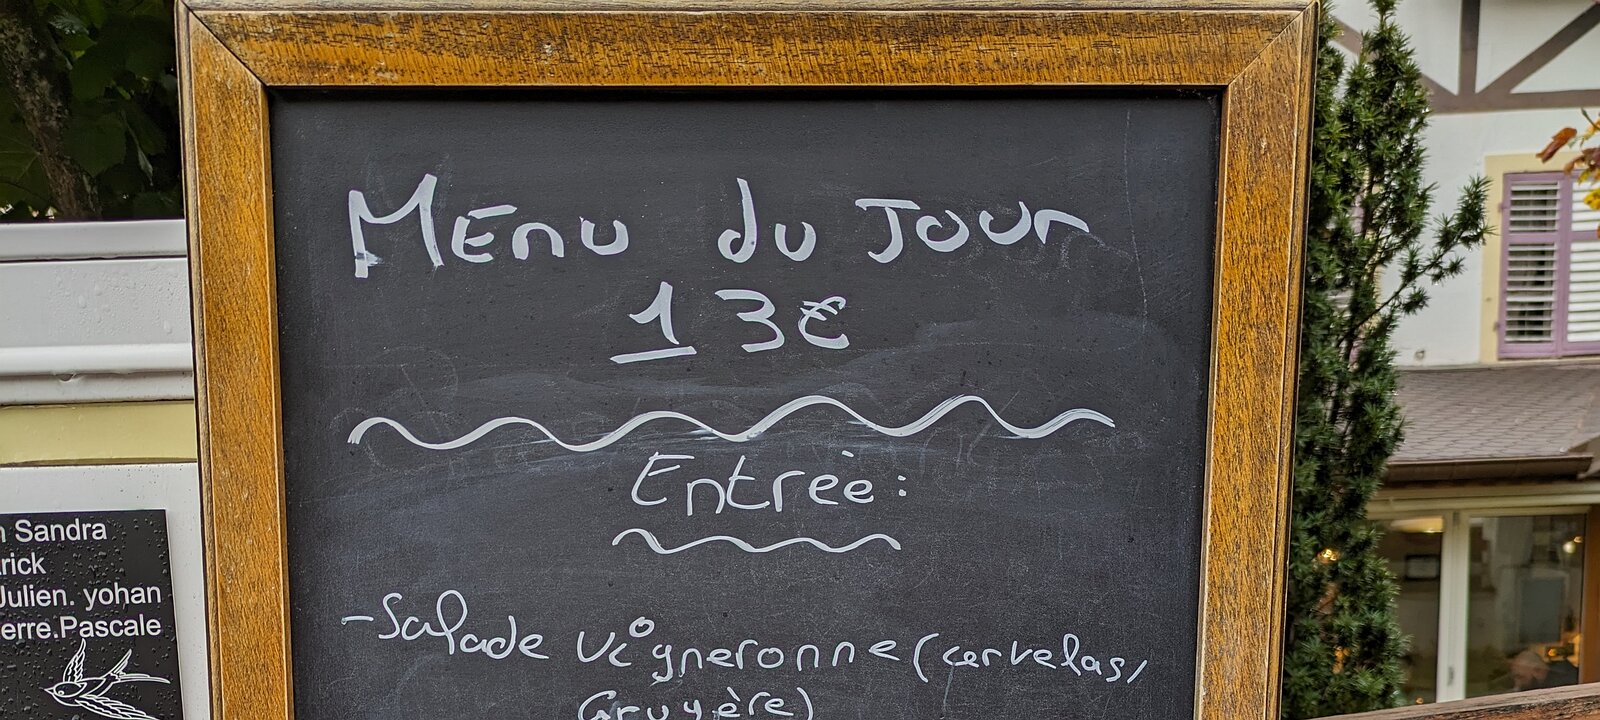 Menu du Jour
13€
Entrèe:
-Salade vigneronne (cervelas,
Gruyère)
Sandra
rick
Julien. yohan
erre.Pascale